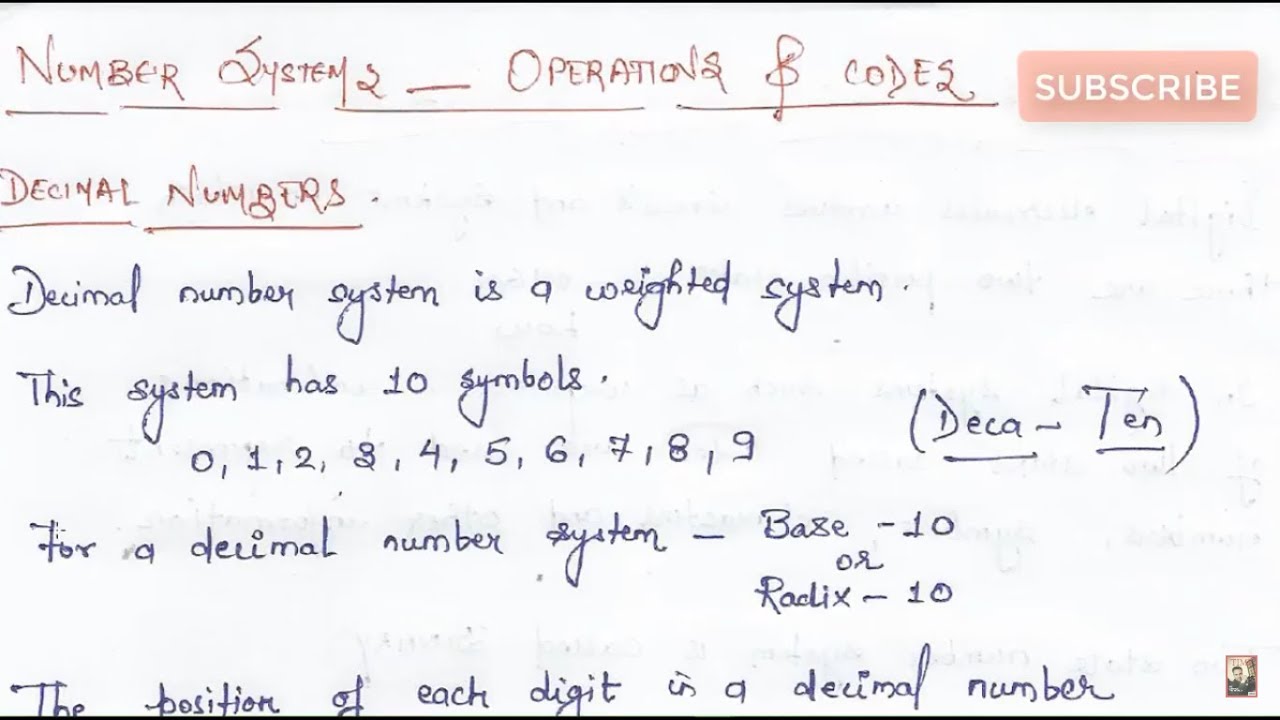 NUMBER SYSTEMS — OPERATIONS & CODES
SUBSCRIBE
DECIMAL NUMBERS.
Decimal number system is a weighted system.
This system has 10 symbols.
(Deca - Ten)
0, 1, 2, 3, 4, 5, 6, 7, 8, 9
For a decimal number system - Base - 10
or
Radix - 10
The position of each digit in a decimal number